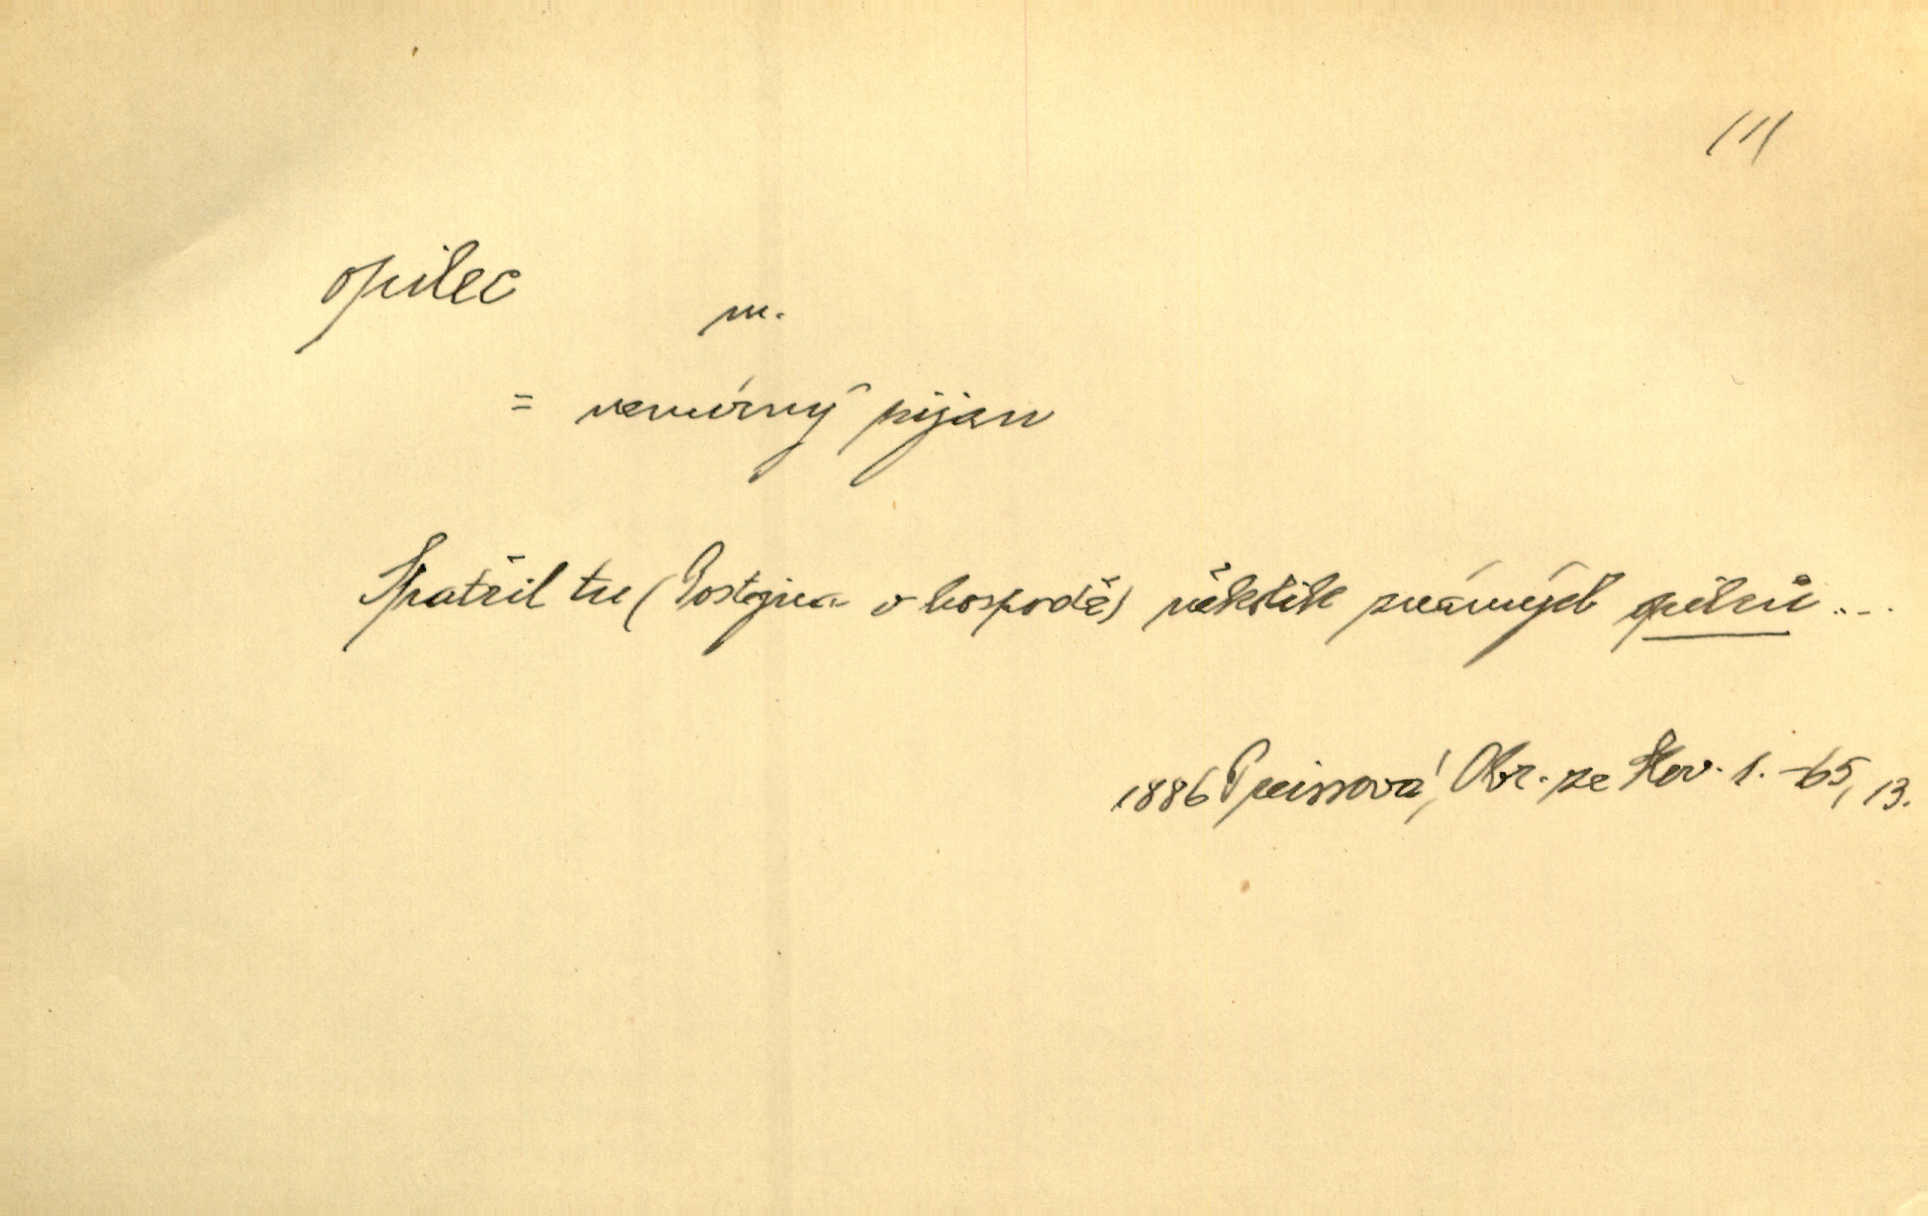 111
opilec
m.
= nemírný pijan
Spatřil tu (v hospodě) několik známých opilců ...
1886 Preissová, Obr. ze Slov. 1. - 65, 13.